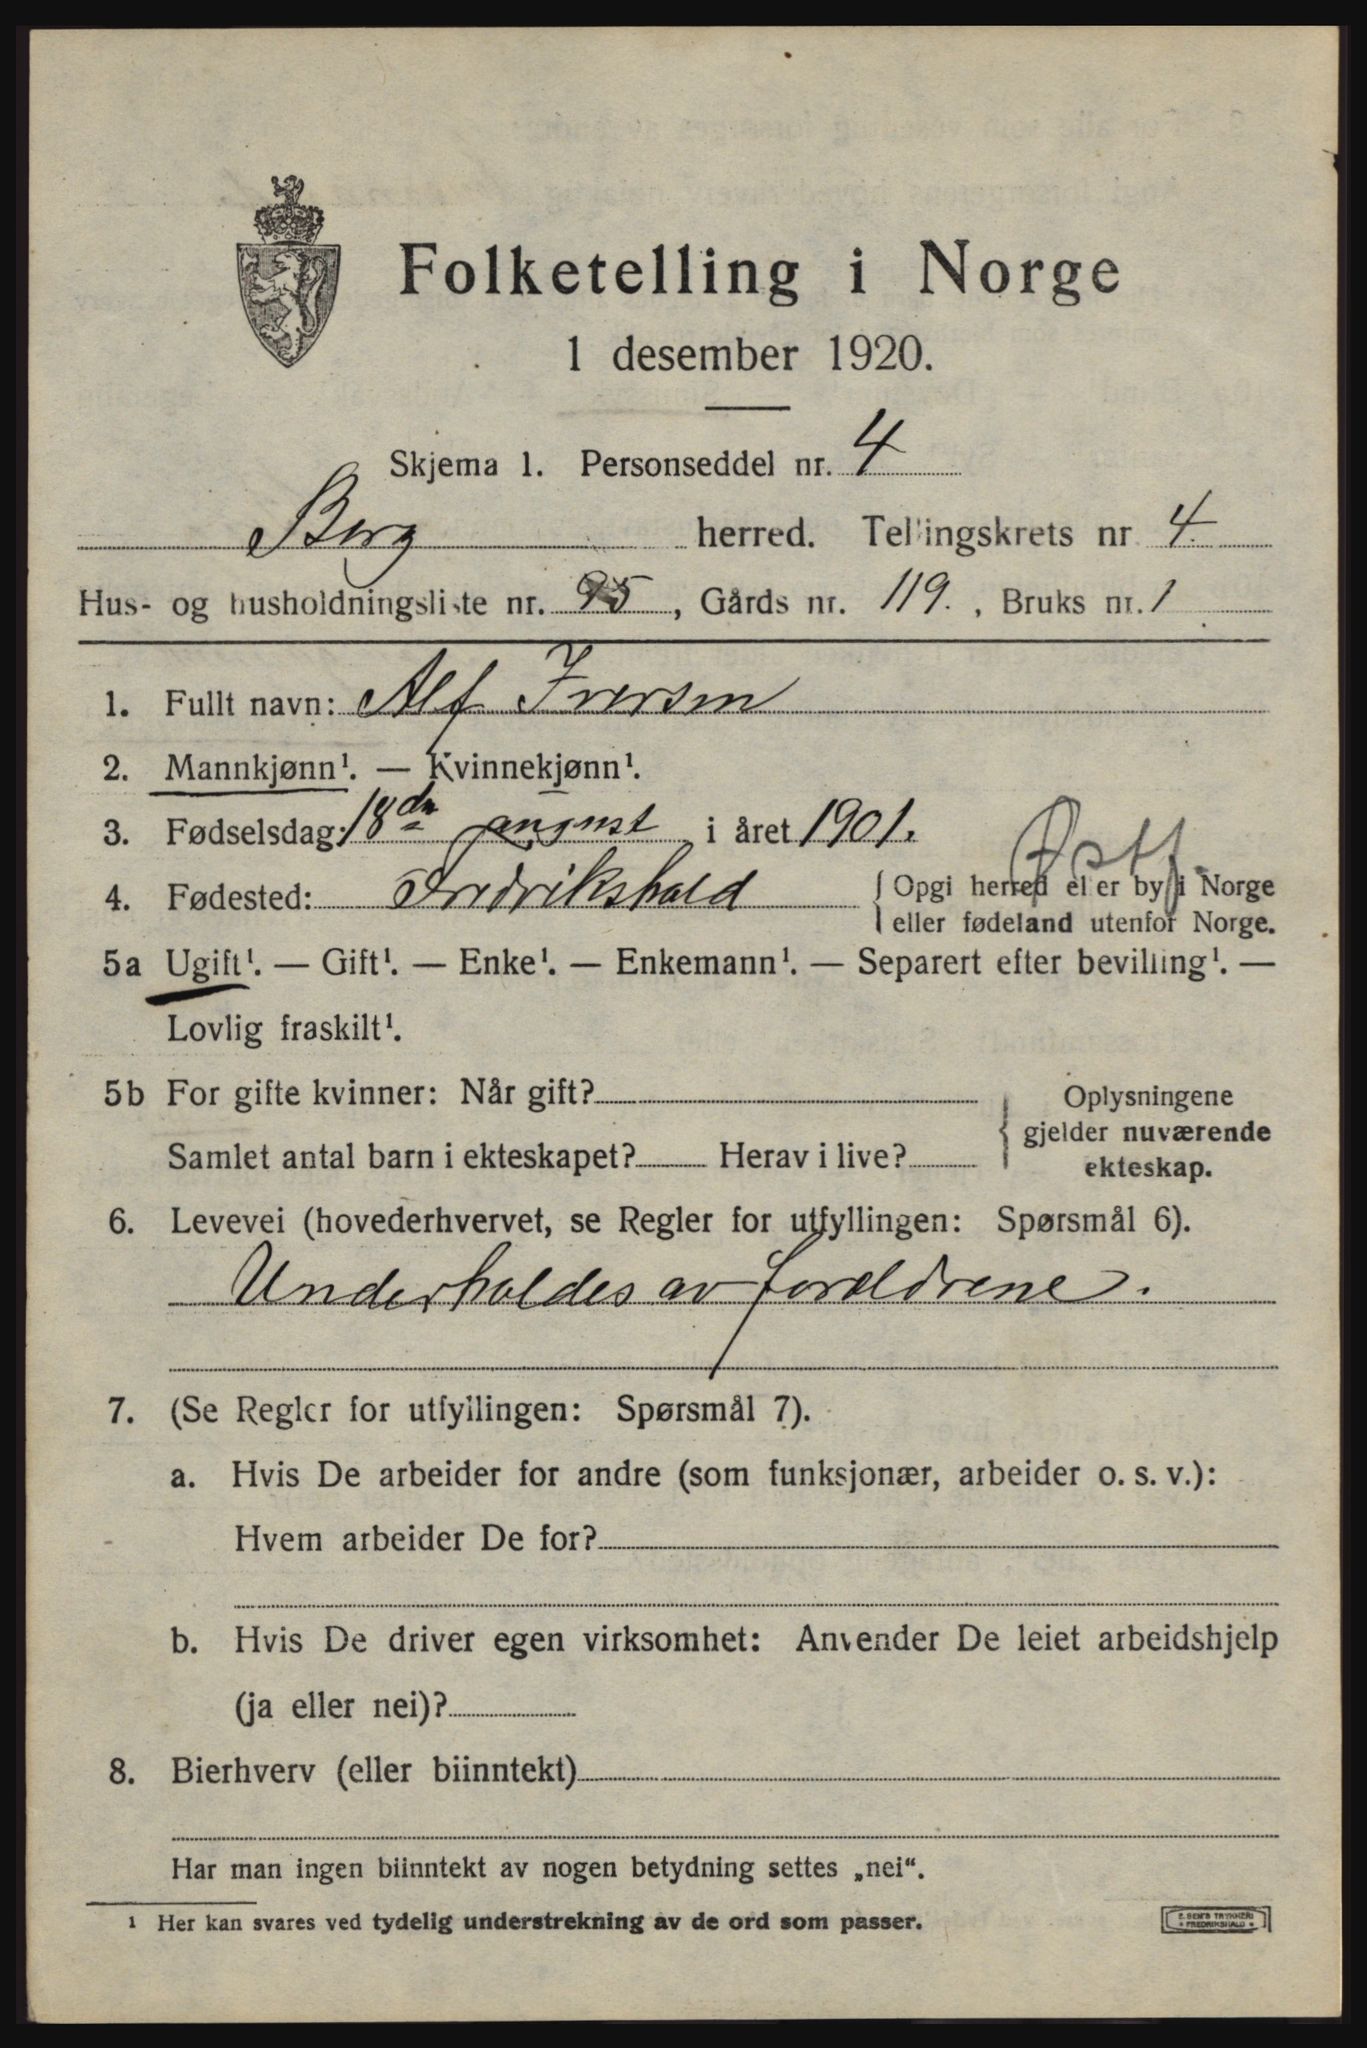 Folketelling i Norge
1 desember 1920.
Skjema 1. Personseddel nr. 4
Berg herred. Tellingskrets nr 4.
Hus- og husholdningsliste nr. 95, Gårds nr. 119., Bruks nr. 1
1. Fullt navn: Alf Iversen
2. Mannkjønn¹. — Kvinnekjønn¹.
3. Fødselsdag: 18de august i året 1901.
Østf.
4. Fødested: Fredrikshald { Opgi herred eller by i Norge
eller fødeland utenfor Norge.
5a Ugift¹. — Gift¹. — Enke¹. — Enkemann¹. — Separert efter bevilling¹. —
Lovlig fraskilt¹.
5b For gifte kvinner: Når gift?
Samlet antal barn i ekteskapet? Herav i live?
Oplysningene
gjelder nuværende
ekteskap.
6. Levevei (hovederhvervet, se Regler for utfyllingen: Spørsmål 6).
Underholdes av foreldrene.
7. (Se Regler for utfyllingen: Spørsmål 7).
a. Hvis De arbeider for andre (som funksjonær, arbeider o. s. v.):
Hvem arbeider De for?
b. Hvis De driver egen virksomhet: Anvender De leiet arbeidshjelp
(ja eller nei)?
8. Bierhverv (eller biinntekt)
Har man ingen biinntekt av nogen betydning settes „nei“.
¹ Her kan svares ved tydelig understrekning av de ord som passer.
E. SEM'S TRYKKERI
FREDRIKSHALD